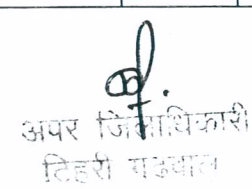 अपर जिलाधिकारी
टिहरी गढ़वाल